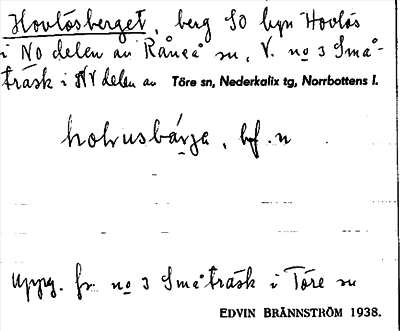 Hovlösberget, berg SO byn Hovlös
i NO delen av Råneå sn, V. no 3 Små-
träsk i NV delen av Töre sn, Nederkalix tg, Norrbottens l.
bf. n
Uppg. fr. no 3 Småträsk i Töre sn
EDVIN BRÄNNSTRÖM 1938.